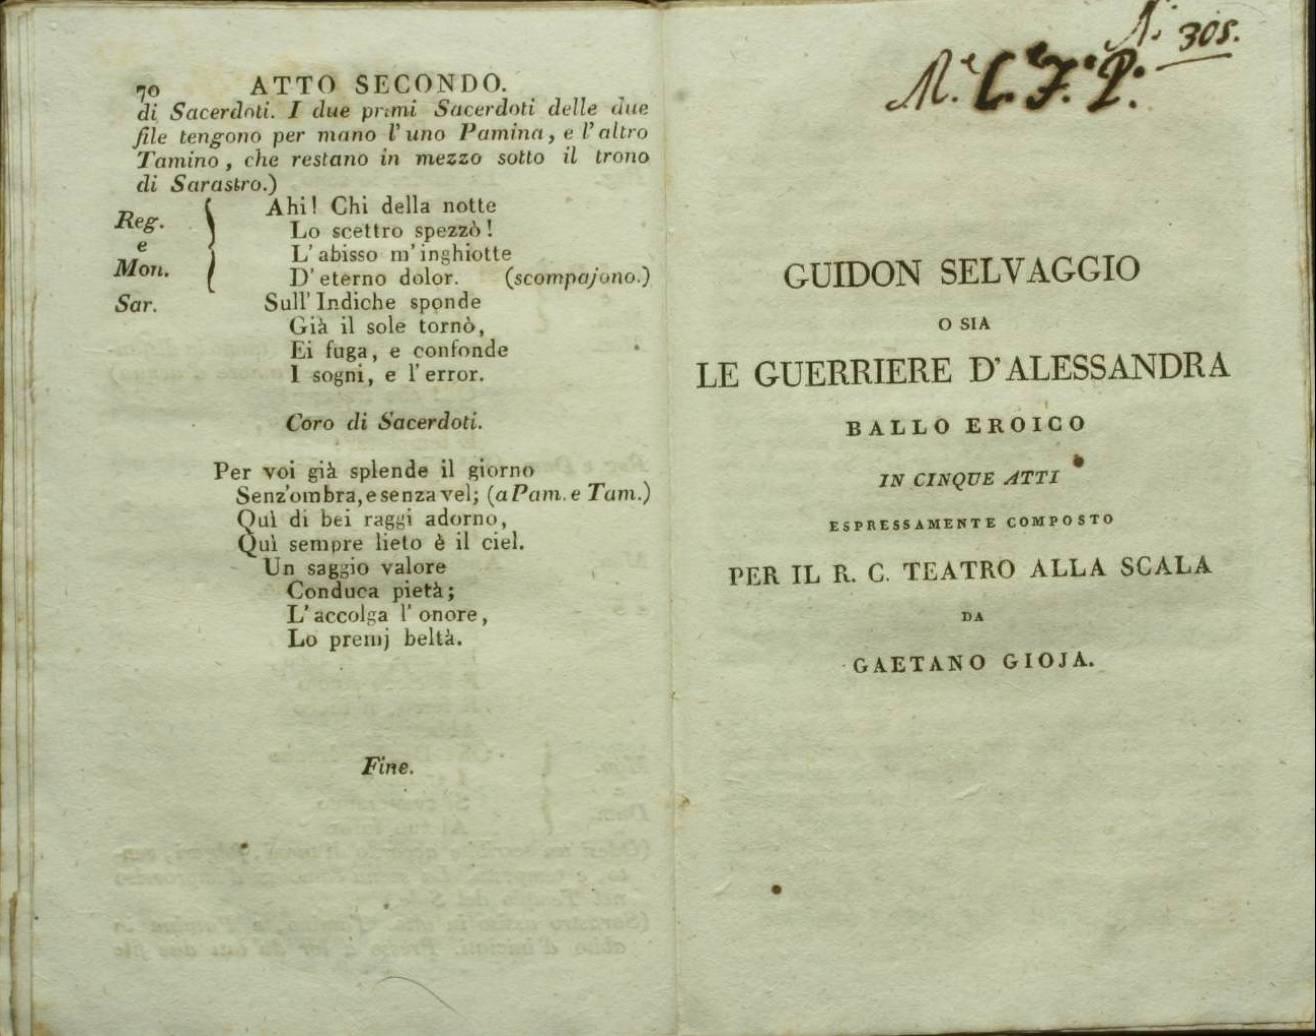 70 ATTO SECONDO.
di Sacerdoti. I due primi Sacerdoti delle due
file tengono per mano l'uno Pamina, e l'altro
Tamino, che restano in mezzo sotto il trono
di Sarastro.)
Reg. e Mon. Ahi! Chi della notte
Lo scettro spezzò!
L'abisso m'inghiotte
D'eterno dolor. (scompajono.)
Sar. Sull'Indiche sponde
Già il sole tornò,
Ei fuga, e confonde
I sogni, e l'error.
Coro di Sacerdoti.
Per voi già splende il giorno
Senz'ombra, e senza vel; (a Pam. e Tam.)
Quì di bei raggi adorno,
Quì sempre lieto è il ciel.
Un saggio valore
Conduca pietà;
L'accolga l'onore,
Lo premj beltà.
Fine.
N. 305.
GUIDON SELVAGGIO
O SIA
LE GUERRIERE D'ALESSANDRA
BALLO EROICO
IN CINQUE ATTI
ESPRESSAMENTE COMPOSTO
PER IL R. C. TEATRO ALLA SCALA
DA
GAETANO GIOJA.